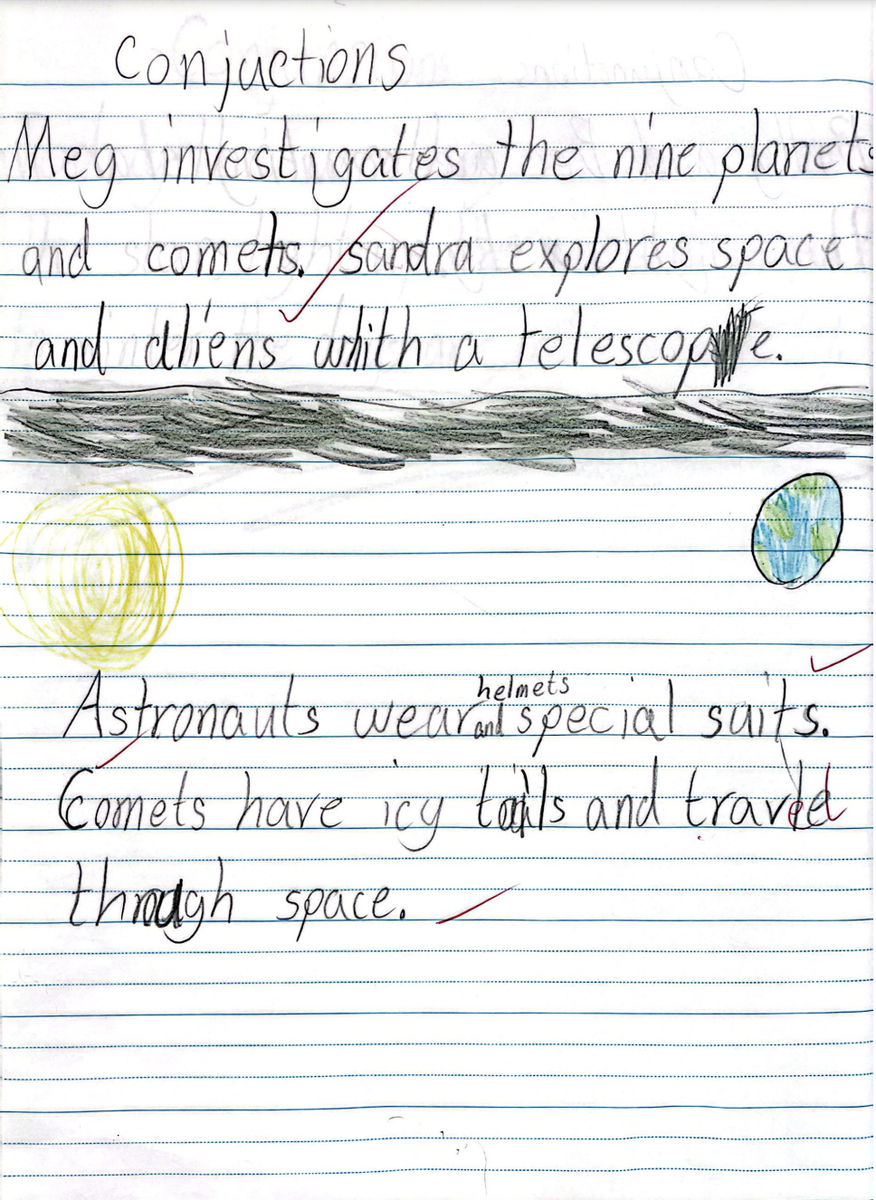 Conjuctions
Meg investigates the nine planets
and comets. sandra explores space
and aliens whith a telescope.
helmets
Astronauts wear and special suits.
Comets have icy tails and travel
through space.